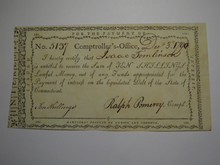 FOR THE PAYMENT OF
No. 3157 Comptroller's-Office, Dec. 5, 1790
I hereby certify that Isaac Tomlinson
is entitled to receive the Sum of Ten SHILLINGS
Lawful Money out of any Funds appropriated for the
Payment of Interest on the liquidated Debt of the State of
Connecticut.
Ten Shillings
Ralph Pomeroy Compt.